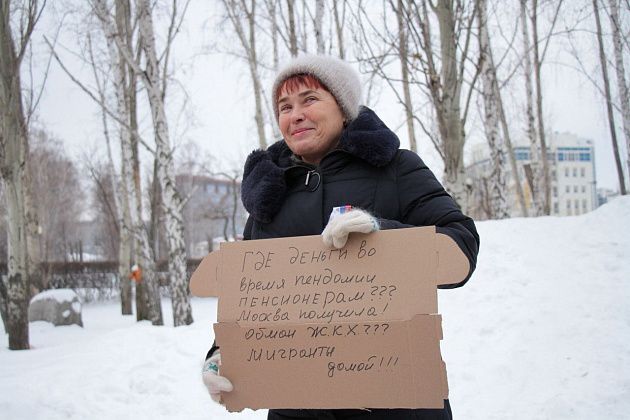 Где деньги во
время пендомии
пенсионерам???
Москва получила!
обман Ж.К.Х???
Мигранты
домой!!!